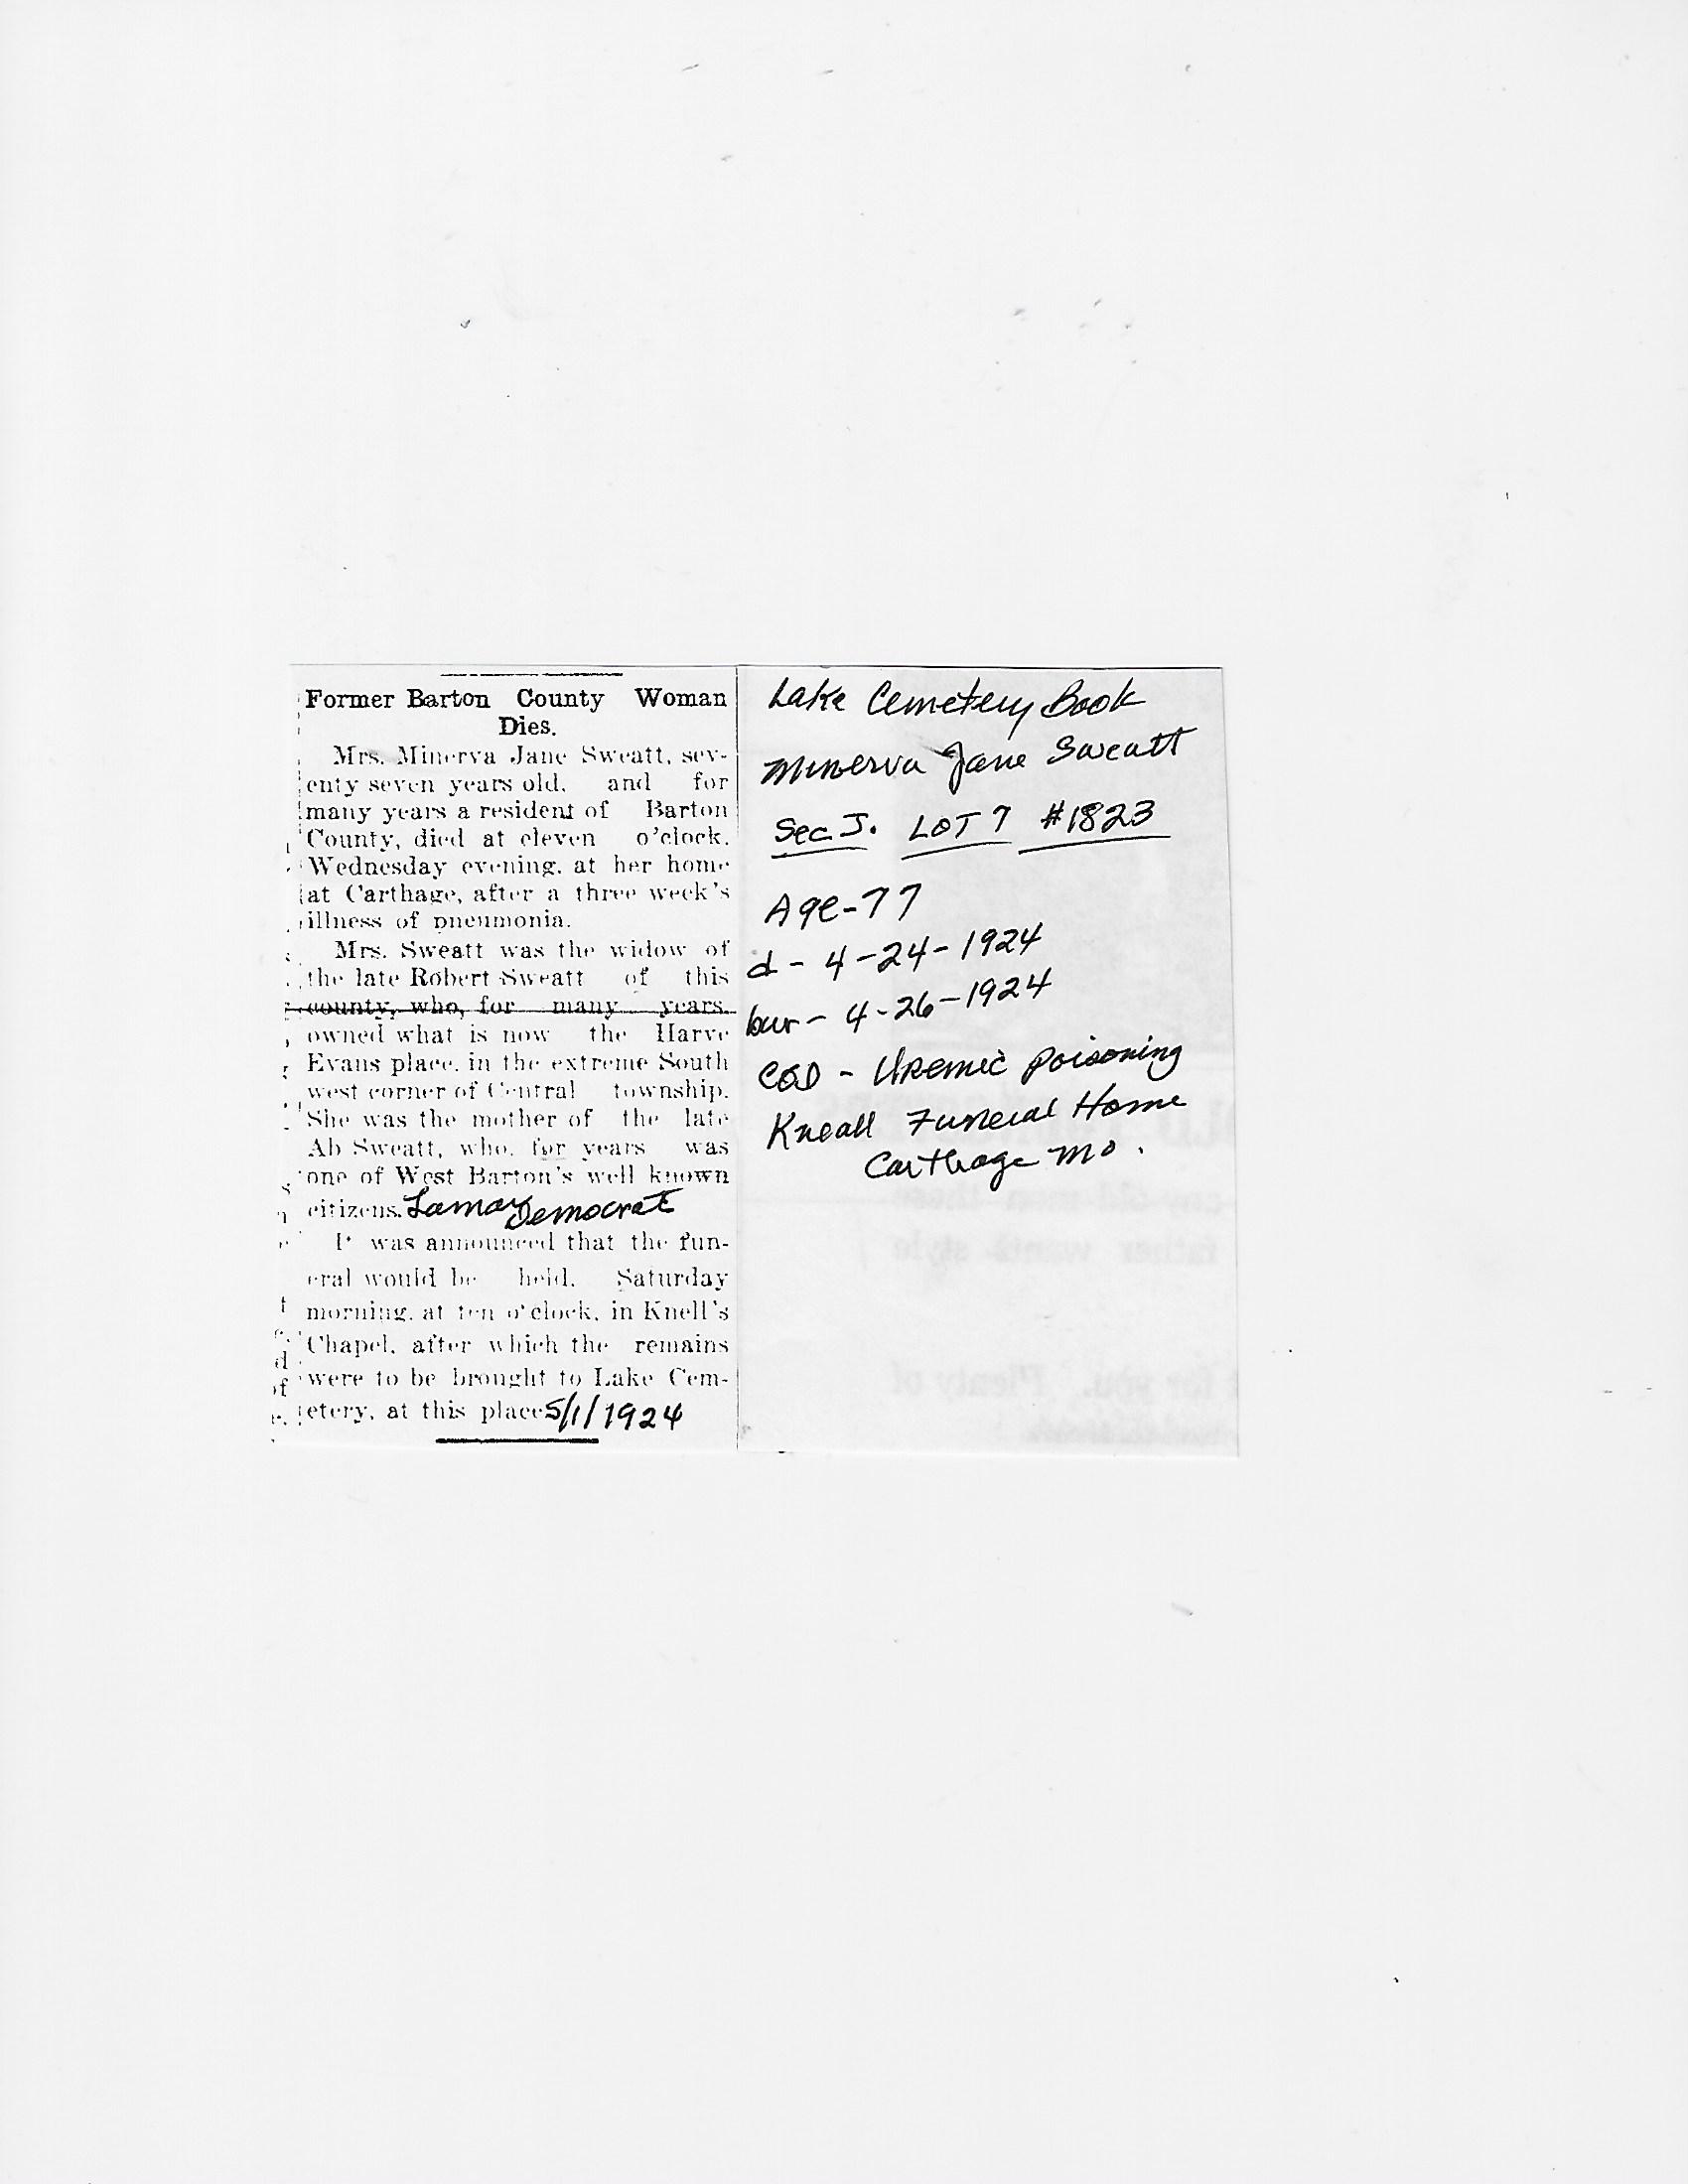 Former Barton County Woman
Dies.
Mrs. Minerva Jane Sweatt, sev-
enty seven years old, and for
many years a resident of Barton
County, died at eleven o'clock,
Wednesday evening, at her home
at Carthage, after a three week's
illness of pneumonia.
Mrs. Sweatt was the widow of
the late Robert Sweatt of this
county, who, for many years,
owned what is now the Harve
Evans place, in the extreme South
west corner of Central township.
She was the mother of the late
Ab Sweatt, who, for years was
one of West Barton's well known
citizens. Lamar Democrat
It was announced that the fun-
eral would be held, Saturday
morning, at ten o'clock, in Knell's
Chapel, after which the remains
were to be brought to Lake Cem-
etery, at this place 5/1/1924
Lake Cemetery Book
Minerva Jane Sweatt
Sec J. LOT 7 #1823
Age-77
d - 4-24-1924
bur - 4-26-1924
COD - Uremic poisoning
Kneall Funeral Home
Carthage Mo.